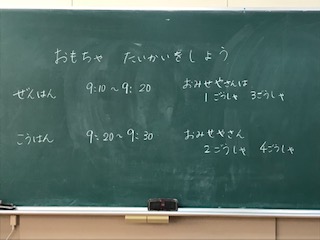 おもちゃ たいかいをしよう
ぜんはん 9:10〜9:20 おみせやさんは
1ごうしゃ 3ごうしゃ
こうはん 9:20〜9:30 おみせやさん
2ごうしゃ 4ごうしゃ